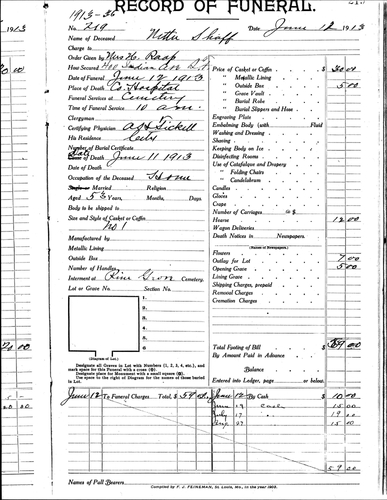 RECORD OF FUNERAL.
1913-36
No. 219
Date June 12 1913
Name of Deceased Nettie Shaff
Charge to
Order Given by Mrs H. Raap
How Secured
Date of Funeral June 12 1913
Place of Death Co. Hospital
Funeral Services at Cemetery
Time of Funeral Services 10 a.m.
Clergyman
Certifying Physician A H Tickell
His Residence City
Number of Burial Certificate
Date of Death June 11 1913
Date of Death
Occupation of the Deceased Home
Single or Married Religion
Aged 53 Years, Months, Days
Body to be shipped to
Size and Style of Casket or Coffin
No 1
Manufactured by
Metallic Lining
Outside Box
Number of Handles
Interment at Pine Grove Cemetery.
Lot or Grave No. Section No.
1.
2.
3.
4.
5.
6.
(Diagram of Lot.)
Designate all Graves in Lot with Numbers (1, 2, 3, 4, etc.), and
mark space for this Funeral with a cross
Designate place for Monument with a small square
Use space to the right of Diagram for the names of those buried
in Lot.
Price of Casket or Coffin $ 30 00
" Metallic Lining
" Outside Box 5 00
" Grave Vault
" Burial Robe
" Burial Slippers and Hose
Engraving Plate
Embalming Body (with Fluid
Washing and Dressing
Shaving
Keeping Body on Ice
Disinfecting Rooms
Use of Catafalque and Drapery
" Folding Chairs
" Candelabrum
Candles
Gloves
Crape
Number of Carriages @ $
Hearse 12 00
Wagon Deliveries
Death Notices in Newspapers.
(Names of Newspapers.)
Flowers
Outlay for Lot 7 00
Opening Grave 5 00
Lining Grave
Shipping Charges, prepaid
Removal Charges
Cremation Charges
Total Footing of Bill $ 59 00
By Amount Paid in Advance
Balance
Entered into Ledger, page or below.
June 12 To Funeral Charges $ 59 00
June 12 By Cash $ 10 00
June 19 Cash 15 00
July 17 " 19 00
Aug 27 15 00
59 00
Names of Pall Bearers
Compiled by F. J. FEINEMAN, St. Louis, Mo., in the year 1902.
1913